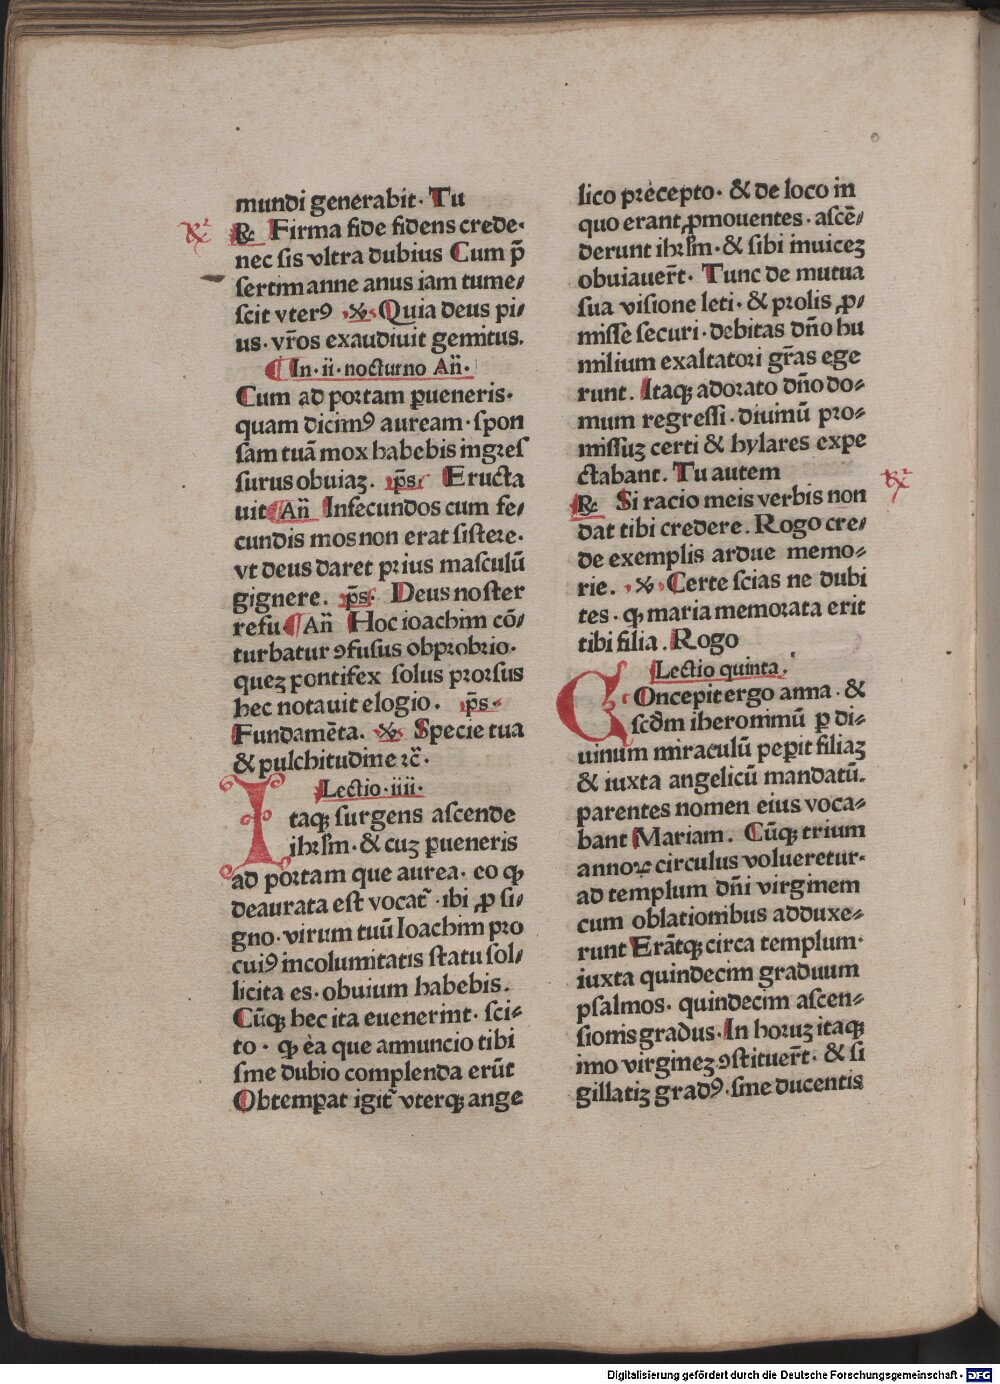 mundi generabit· Tu
℟ Firma fide fidens crede·
nec sis vltra dubius Cum p̄
sertim anne anus iam tume⸗
scit vterꝰ ℣ Quia deus pi⸗
us· vr̄os exaudiuit gemitus.
In·ii·nocturno An̄·
Cum ad portam ꝑueneris·
quam dicimꝰ auream·spon
sam tuā mox habebis ingres
surus obuiaꝫ. p̄s. Eructa
uit An̄ Infecundos cum fe⸗
cundis mos non erat sistere·
vt deus daret prius masculū
gignere. p̄s· Deus noster
refu An̄ Hoc ioachim cō⸗
turbatur ꝯfusus obprobrio·
queꝫ pontifex solus prorsus
hec notauit elogio. p̄s·
Fundamēta. ℣ Specie tua
& pulchitudine ⁊c̄·
Lectio·iiii·
Itaqꝫ surgens ascende
ihrsm̄·& cuꝫ ꝑueneris
ad portam que aurea· eo ꝙ
deaurata est vocat̄·ibi ꝓ si⸗
gno·virum tuū Ioachim pro
cuiꝰ incolumitatis statu sol⸗
licita es·obuium habebis.
Cūqꝫ hec ita euenerint· sci⸗
to· ꝙ ea que annuncio tibi
sine dubio complenda erūt
Obtemꝑat igit̄ vterqꝫ ange
lico precepto· & de loco in
quo erant ꝓmouentes·ascē⸗
derunt ihrsm̄·& sibi inuiceꝫ
obuiauer̄t· Tunc de mutua
sua visione leti·& prolis ꝓ⸗
misse securi·debitas dn̄o hu
milium exaltatori gr̄as ege
runt. Itaqꝫ adorato dn̄o do⸗
mum regressi·diuinū pro⸗
missuꝫ certi & hylares expe
ctabant. Tu autem
℟ Si racio meis verbis non
dat tibi credere. Rogo cre⸗
de exemplis ardue memo⸗
rie. ℣ Certe scias ne dubi
tes·ꝙ maria memorata erit
tibi filia. Rogo
Lectio quinta.
COncepit ergo anna·&
scd̄m iheronimū ꝑ di⸗
uinum miraculū peꝑit filiaꝫ
& iuxta angelicū mandatū.
parentes nomen eius voca⸗
bant Mariam. Cūqꝫ trium
annoꝝ circulus volueretur·
ad templum dn̄i virginem
cum oblationibus adduxe⸗
runt Erāt qꝫ circa templum·
iuxta quindecim graduum
psalmos·quindecim ascen⸗
sionis gradus·In horuꝫ itaqꝫ
imo virgineꝫ ꝯstituer̄t·& si
gillatiꝫ gradꝰ·sine ducentis
Digitalisierung gefördert durch die Deutsche Forschungsgemeinschaft - DFG